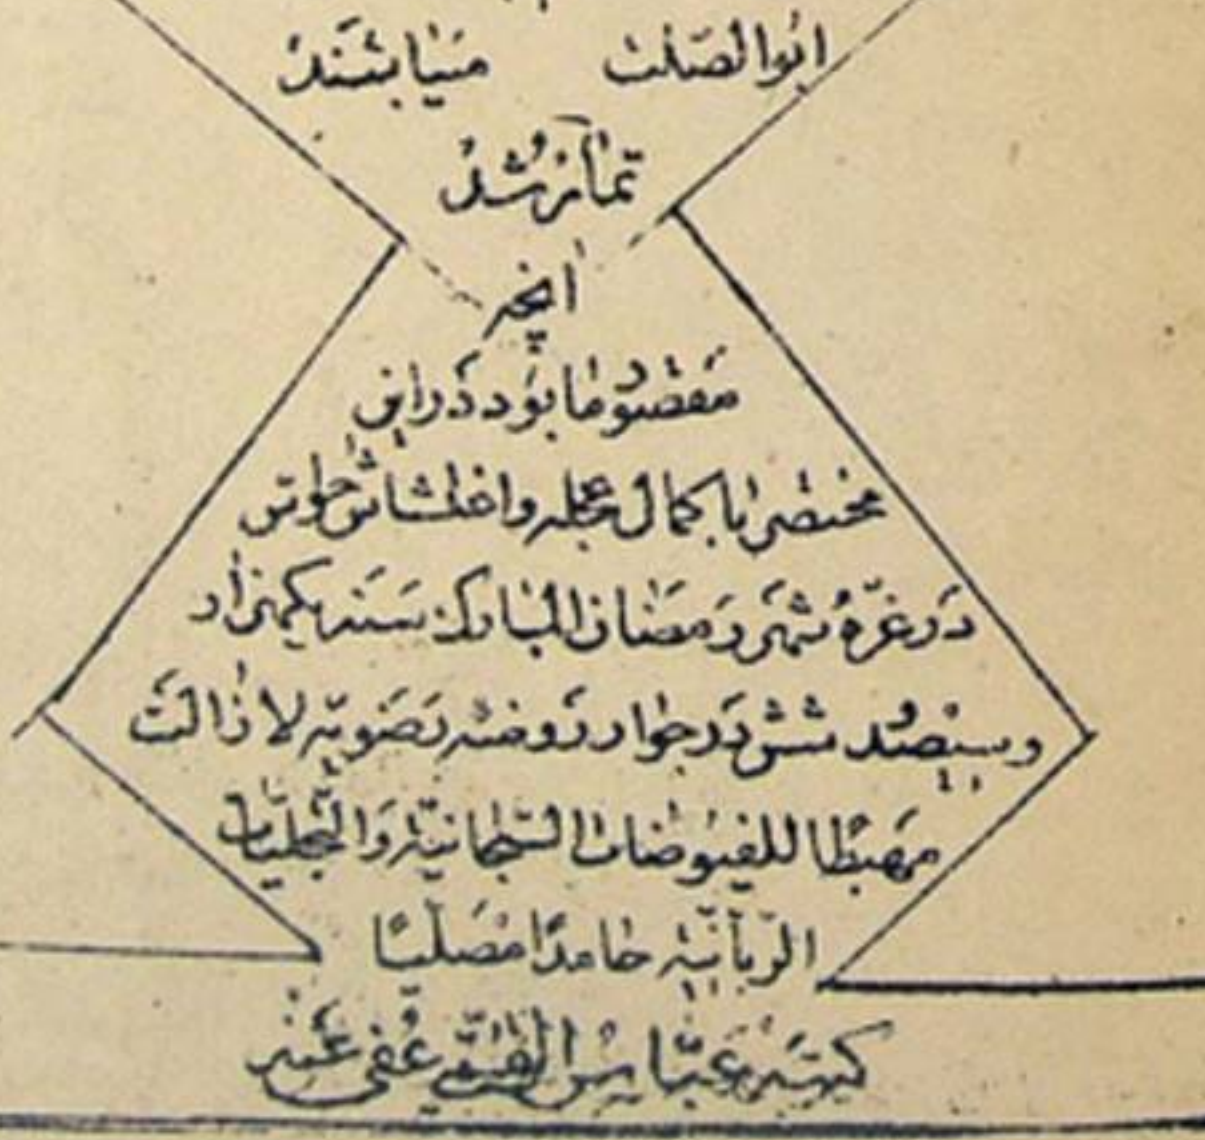 ابوالصلت میباشند
تمام شد
آنچه
مقصود ما بود در این
مختصر با کمال عجله و اغتشاش حواس
در غرّه شهر رمضان المبارک سنه یکهزار
و سیصد شش در جوار روضه رضویّه لا زالت
مهبطًا للفیوضات السّبحانیّة والتّجلّیات
الرّبانیّه حامدًا مصلّیًا
کتبه عبّاس القمّی عُفی عنه